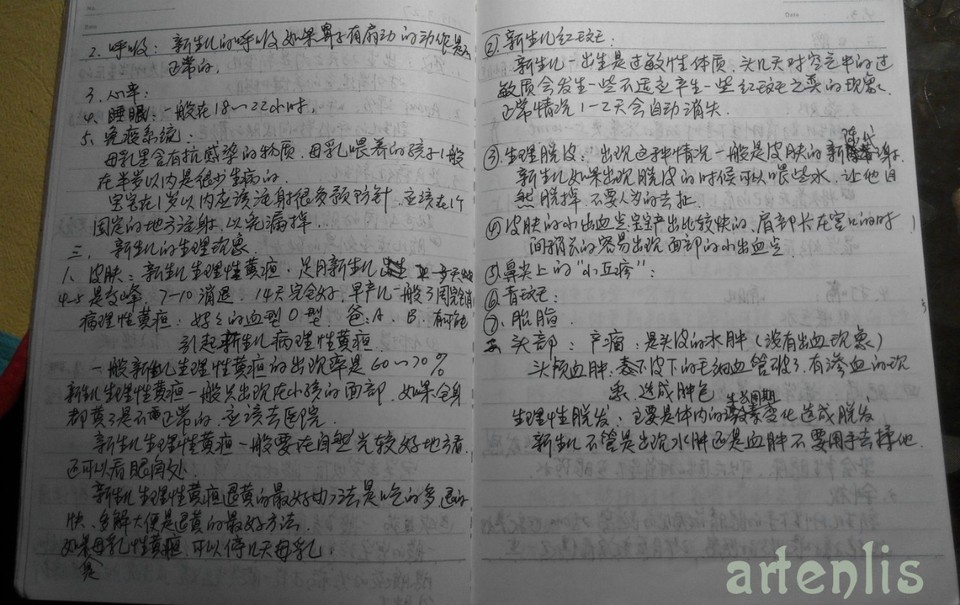 No.
Date
2. 呼吸：新生儿的呼吸如果鼻子有扇动的动作是不
正常的，
3. 心率：
4. 睡眠：一般在18～22小时，
5. 免疫系统：
母乳里含有抗感染的物质，母乳喂养的孩子一般
在半岁以内是很少生病的。
宝宝在1岁以内应该注射很多预防针，应该在1个
固定的地方注射，以免漏掉。
三、新生儿的生理现象
1、皮肤：新生儿生理性黄疸，足月新生儿
4-5是高峰，7-10消退，14天完全好，早产儿一般3周
病理性黄疸：妈妈的血型O型，爸：A、B、有可能
引起新生儿病理性黄疸
一般新生儿生理性黄疸的出现率是60～70%
新生儿生理性黄疸一般只出现在小孩的面部，如果全身
都黄了是不正常的，应该去医院
新生儿生理性黄疸一般要在自然光较好地方看，
还可以看眼角处
新生儿生理性黄疸退黄的最好办法是吃的多退的
快，多解大便是退黄的最好方法
如果母乳性黄疸，可以停几天母乳，
Date
②新生儿红斑：
新生儿一出生是过敏性体质，头几天对空气中的过
敏质会发生一些不适应产生一些红斑之类的现象，
正常情况1-2天会自动消失。
③生理脱皮：出现这种情况一般是皮肤的新陈代谢，
新生儿如果出现脱皮的时候可以喂些水，让他自
然脱掉，不要人为的去扯。
④皮肤的小出血点：宝宝产出比较快的，肩部长在宫口的时
间稍长的容易出现面部的小出血点
⑤鼻尖上的"小丘疹"：
⑥青斑：
⑦、胎脂
头部：产瘤：是头皮的水肿（没有出血现象）
头颅血肿：皮下的毛细血管破了，有渗血的现
象，造成肿包
生理性脱发：主要是体内的变化造成脱发
新生儿不管是出现水肿还是血肿不要用手去揉他
artenlis